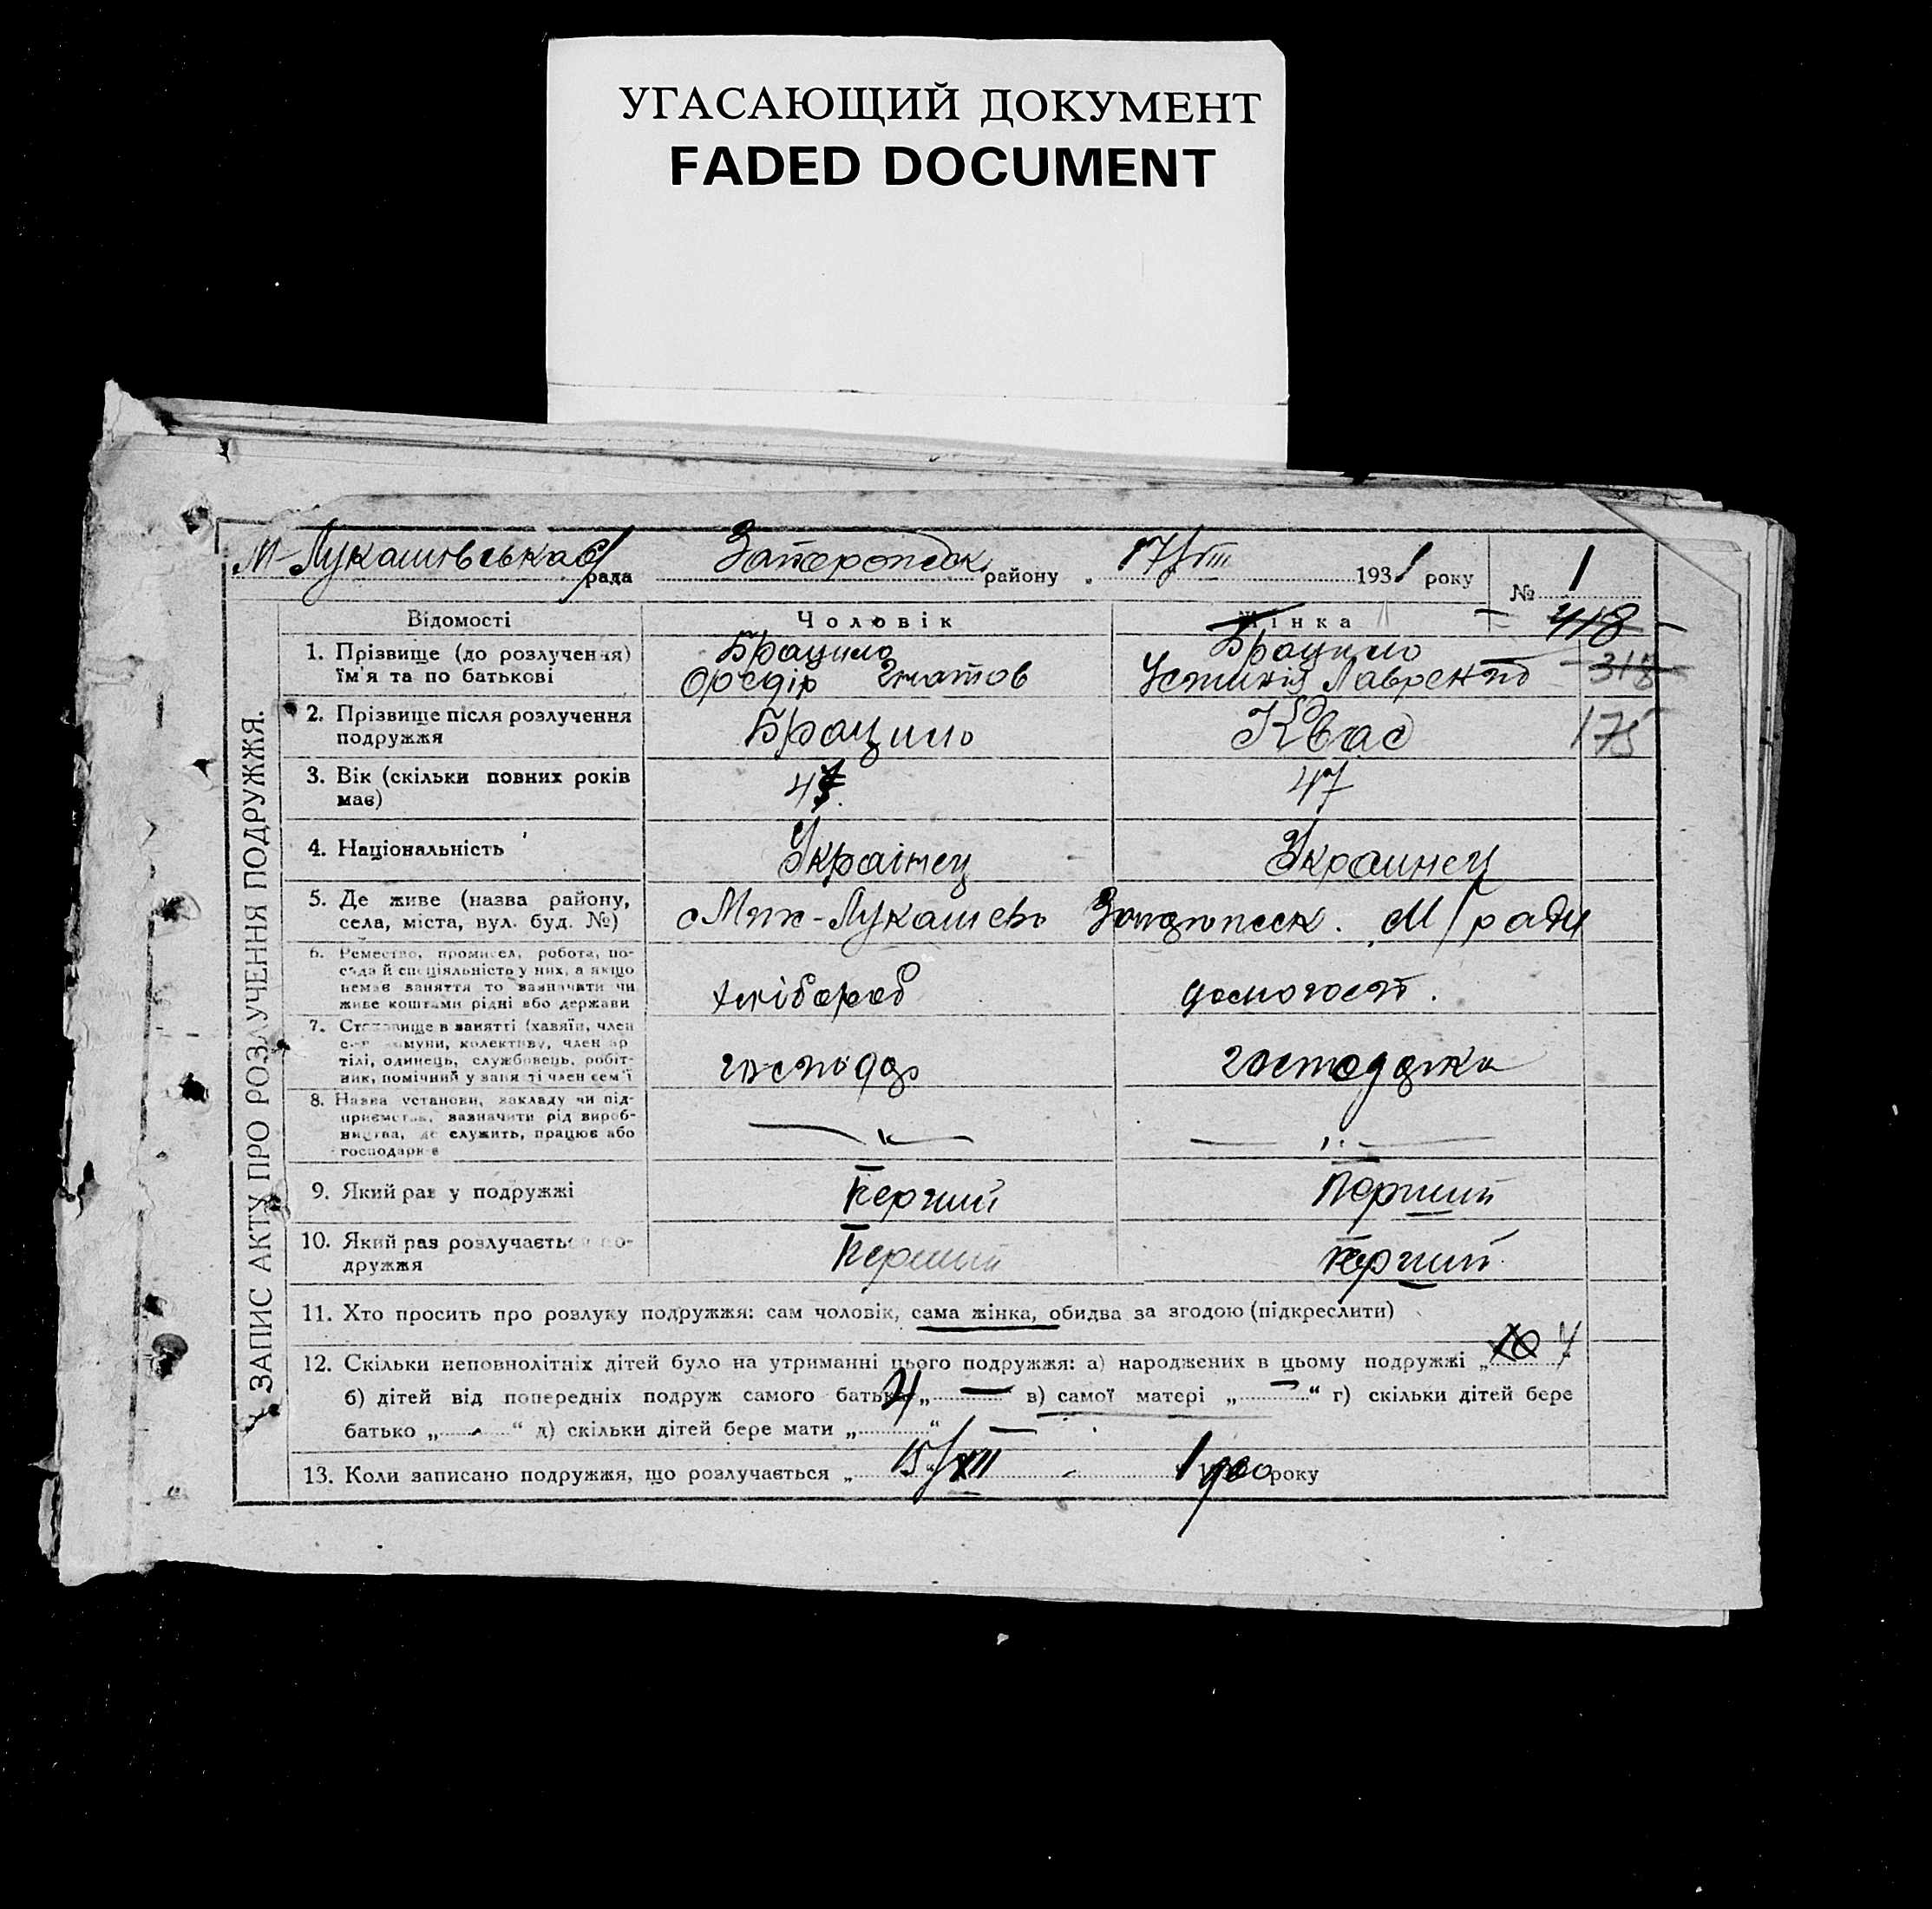 УГАСАЮЩИЙ ДОКУМЕНТ
FADED DOCUMENT
М-Лукашівська с/рада Запорожск району „ 17/VIII 1931 року № 1
Відомості Чоловік Жінка 418
1. Прізвище (до розлучення) Брацило Брацило 318
ім'я та по батькові Фредір Гнатов Устинія Лаврентр
2. Прізвище після розлучення Брацило Квас 175
подружжя
3. Вік (скільки повних років 47 47
має)
4. Національність Українец Украинец
5. Де живе (назва району,
села, міста, вул. буд. №) М / ради
6. Ремество, промисел, робота, по-
сада й спеціяльність у них, а якщо
немає заняття то зазначати чи хлібороб
живе коштами рідні або держави
7. Становище в занятті (хазяїн, член
комуни, колективу, член ар
тілі, одинець, службовець, робіт-
ник, помічний у занятті член сем'ї
8. Назва установи, закладу чи під-
приємства, зазначити рід вироб-
ництва, де служить, працює або
господарює
9. Який раз у подружжі Перший Перший
10. Який раз розлучається по- Перший Перший
дружжя
11. Хто просить про розлуку подружжя: сам чоловік, сама жінка, обидва за згодою (підкреслити)
12. Скільки неповнолітніх дітей було на утриманні цього подружжя: а) народжених в цьому подружжі „ 4
б) дітей від попередніх подруж самого батька „ — “ в) самої матері „ — “ г) скільки дітей бере
батько „ - “ д) скільки дітей бере мати „ — “
13. Коли записано подружжя, що розлучається „ 15/XII 1900 року
ЗАПИС АКТУ ПРО РОЗЛУЧЕННЯ ПОДРУЖЖЯ.